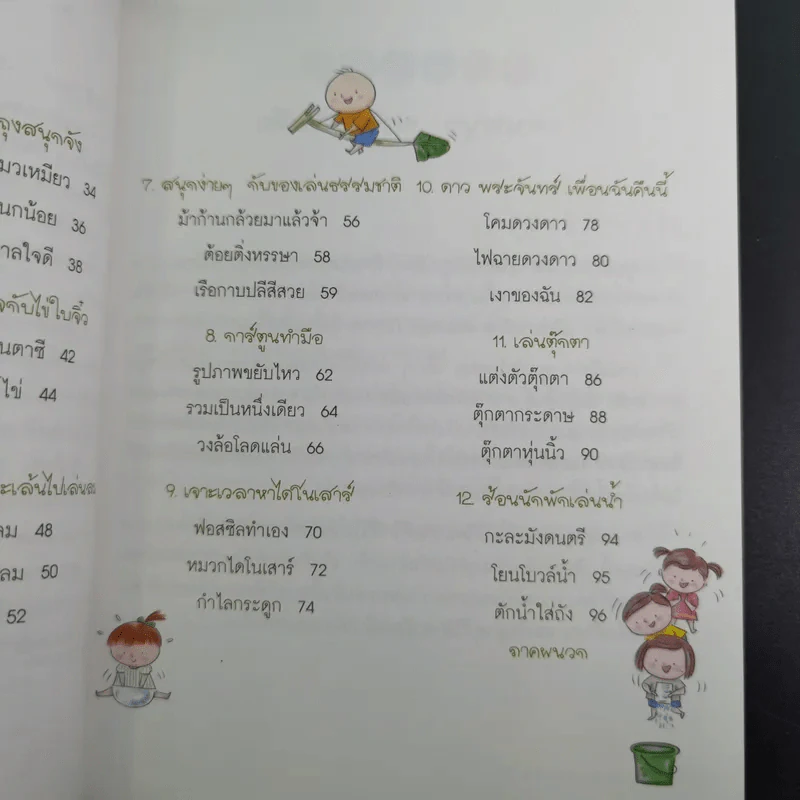 ถุงสนุกจัง
มวเหมียว 34
นกน้อย 36
าลใจดี 38
จกับไข่ใบจิ๋ว
นตาซี 42
ไข่ 44
ะเล้นไปเล่นลม
ลม 48
ลม 50
52
7. สนุกง่ายๆ กับของเล่นธรรมชาติ
ม้าก้านกล้วยมาแล้วจ้า 56
ต้อยติ่งหรรษา 58
เรือกาบปลีสีสวย 59
8. การ์ตูนทำมือ
รูปภาพขยับไหว 62
รวมเป็นหนึ่งเดียว 64
วงล้อโลดแล่น 66
9. เจาะเวลาหาไดโนเสาร์
ฟอสซิลทำเอง 70
หมวกไดโนเสาร์ 72
กำไลกระดูก 74
10. ดาว พระจันทร์ เพื่อนฉันคืนนี้
โคมดวงดาว 78
ไฟฉายดวงดาว 80
เงาของฉัน 82
11. เล่นตุ๊กตา
แต่งตัวตุ๊กตา 86
ตุ๊กตากระดาษ 88
ตุ๊กตาหุ่นนิ้ว 90
12. ร้อนนักพักเล่นน้ำ
กะละมังดนตรี 94
โยนโบวล์น้ำ 95
ตักน้ำใส่ถัง 96
ภาคผนวก